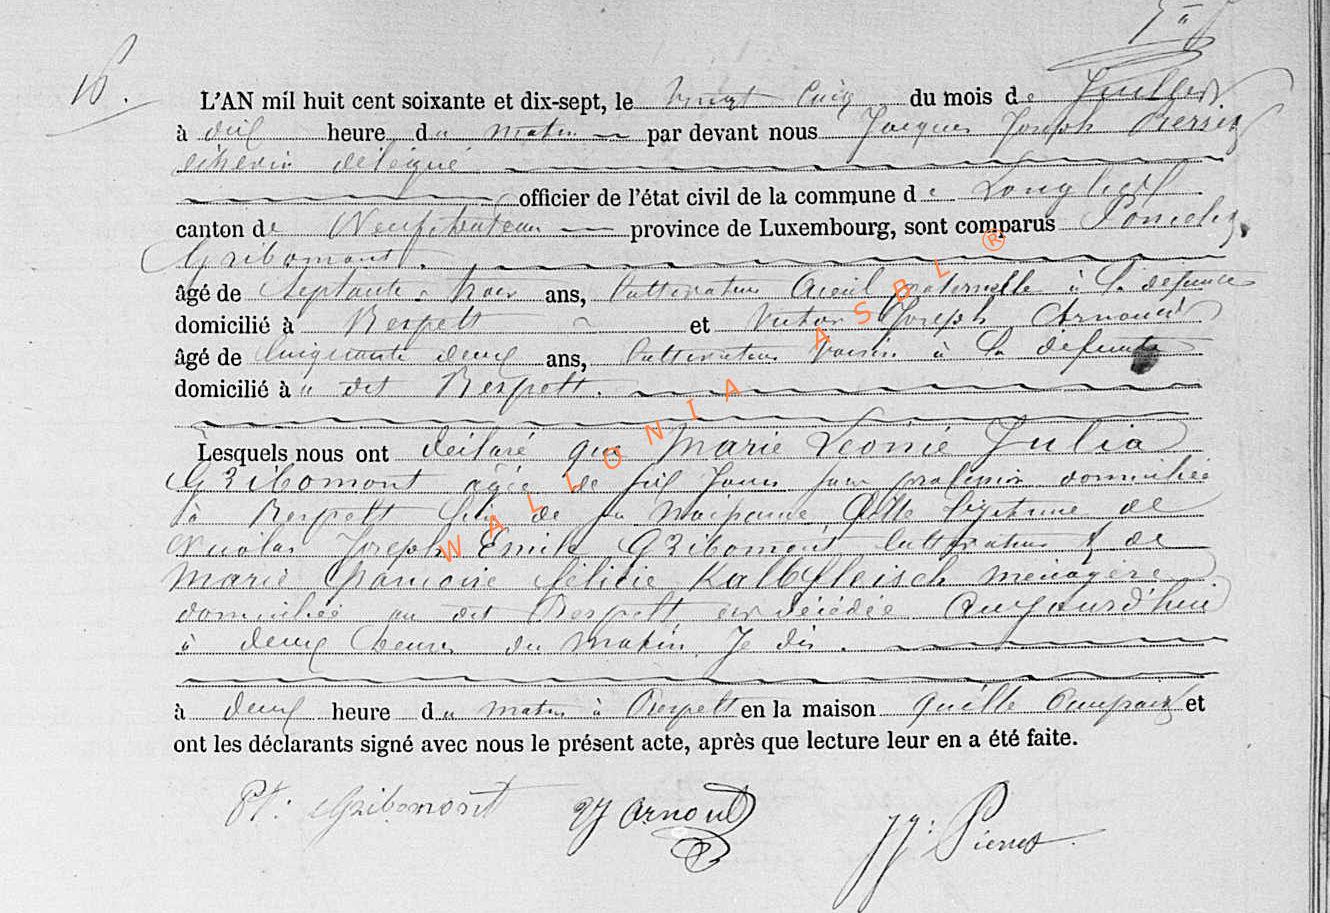 16.
L'AN mil huit cent soixante et dix-sept, le vingt Cinq du mois de Juillet
à dix heure du matin par devant nous Jacques Joseph Pierret
échevin délégué
officier de l'état civil de la commune de Longlier
canton de Neufchateau province de Luxembourg, sont comparus
Gribomont.
âgé de Septante trois ans, Cultivateur Aieul paternelle à la défunte
domicilié à Respelt et Victor Joseph Arnould
âgé de Cinquante deux ans, Cultivateur voisin à la défunte
domicilié à u dit Respelt.
Lesquels nous ont déclaré que Marie Léonie Julia
Gribomont agée de six Jours sans profession domiciliée
à Respelt de sa Naissance, fille légitime de
Nicolas Joseph Emile Gribomont, Cultivateur & de
Marie Félicie Kalbfleisch ménagère
domiciliée au dit Respelt est décédée Aujourd'hui
à deux heures du matin, Je dis.
à deux heure du matin à Respelt en la maison qu'elle Occupait et
ont les déclarants signé avec nous le présent acte, après que lecture leur en a été faite.
Pt. Gribomont VJ Arnould JJ. Pierret
WALLONIA ASBL ®